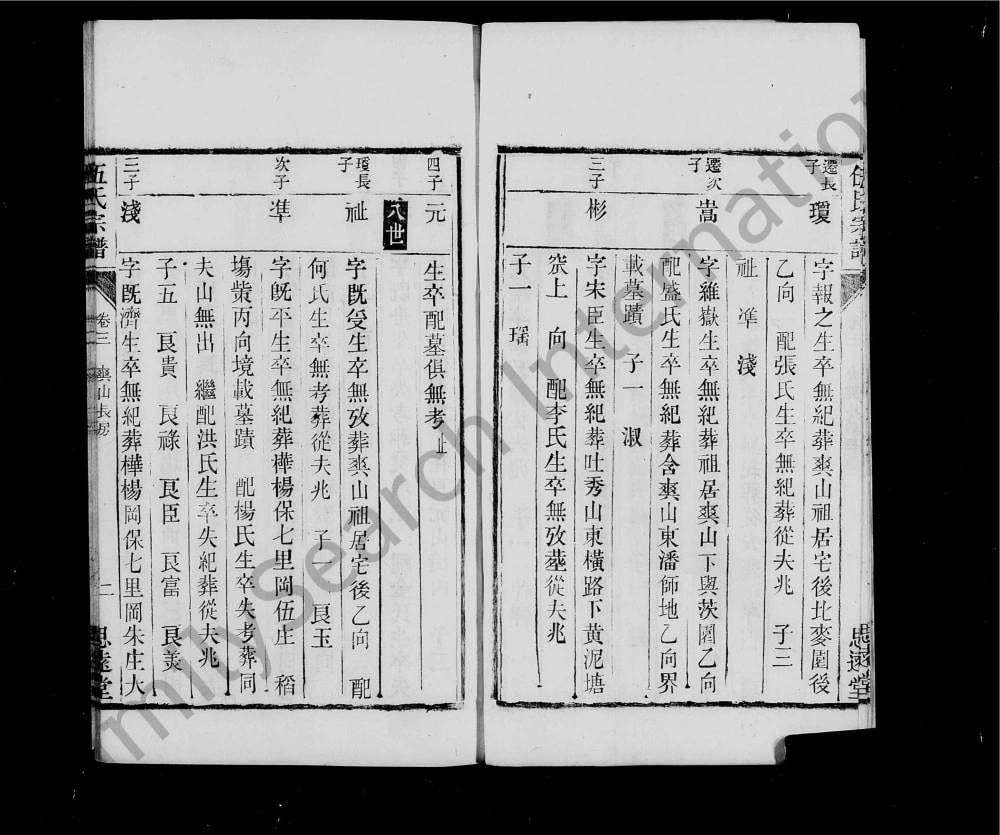 伍氏宗譜
思遠堂
遷長子 瓊
字報之生卒無紀葬爽山祖居宅後北麥園後
乙向 配張氏生卒無紀葬從夫兆 子三
祉 準 淺
遷次子 嵩
字維嶽生卒無紀葬祖居爽山下與茨園乙向
配盛氏生卒無紀葬含爽山東潘師地乙向界
載墓蹟 子一 淑
三子 彬
字宋臣生卒無紀葬吐秀山東橫路下黃泥塘
上 向 配李氏生卒無攷塟從夫兆
子一 瑶
四子 元
生卒配墓俱無考止
八世
瓊長子 祉
字既受生卒無攷葬爽山祖居宅後乙向 配
何氏生卒無考葬從夫兆 子一 良玉
次子 準
字旣平生卒無紀葬樺楊保七里岡伍庄 稻
塲柴丙向境載墓蹟 配楊氏生卒失考葬同
夫山無出 繼配洪氏生卒失紀葬從夫兆
子五 良貴 良祿 良臣 良富 良美
三子 淺
字既濟生卒無紀葬樺楊岡保七里岡朱庄大
伍氏宗譜
卷三 爽山長房
二
思遠堂
FamilySearch International